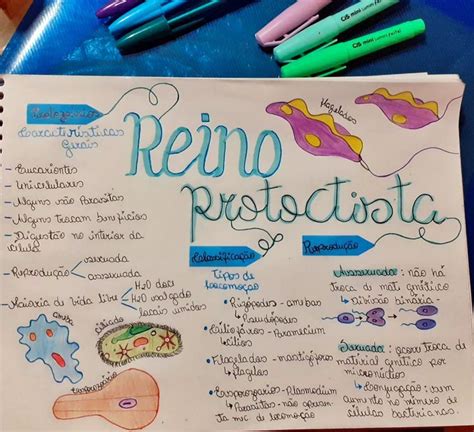 CIS mini LUMINI PASTEL
CIS mini LUMINI PASTEL
Protozoários
Características
Gerais
- Eucariontes
- Unicelulares
- Alguns são Parasitas
- Alguns trocam benefícios
- Digestão no interior da
célula
- Reprodução
sexuada
assexuada
- Maioria de vida livre
H2O doce
H2O salgado
locais úmidos
Ameba
Ciliado
Esporozoário
Reino
Protoctista
Flagelados
Classificação
Tipos de
locomoção
• Rizópodes - amebas
↳ Pseudópodes
• Cilióforos - Paramecium
↳ Cílios
• Flagelados - mastigóforos
↳ flagelos
• Esporozoários - Plasmodium
↳ Parasitas - não apresen
ta mec de locomoção
Reprodução
Assexuada: não há
troca de mat genético
↳ Divisão binária -
Sexuada: ocorre troca de
material genético por
micronúcleos
↳ Conjugação: sem
aumento no número de
células bacterianas.